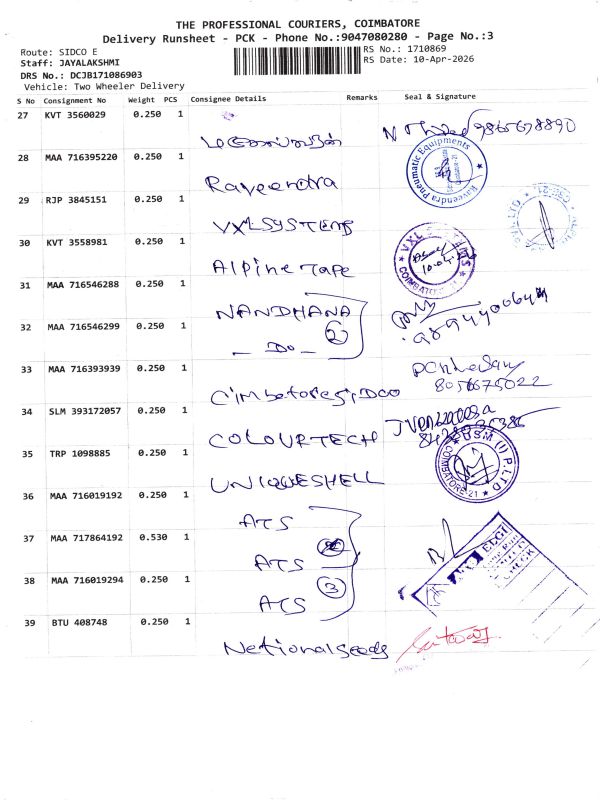 THE PROFESSIONAL COURIERS, COIMBATORE
Delivery Runsheet - PCK - Phone No.:9047080280 - Page No.:3
Route: SIDCO E
RS No.: 1710869
Staff: JAYALAKSHMI
RS Date: 10-Apr-2026
DRS No.: DCJB171086903
Vehicle: Two Wheeler Delivery
S No Consignment No Weight PCS Consignee Details Remarks Seal & Signature
27 KVT 3560029 0.250 1
9865678890
28 MAA 716395220 0.250 1 Raveendra
Raveendra Pneumatic Equipments
29 RJP 3845151 0.250 1 VXL SYSTEMS
30 KVT 3558981 0.250 1 Alpine Tape
31 MAA 716546288 0.250 1 NANDHANA
32 MAA 716546299 0.250 1 - Do - 2
33 MAA 716393939 0.250 1 Cimbatore SIDCO
8056675022
34 SLM 393172057 0.250 1 COLOURTECH
35 TRP 1098885 0.250 1 UNIQUESHELL
36 MAA 716019192 0.250 1 ATS
37 MAA 717864192 0.530 1 ATS
38 MAA 716019294 0.250 1 ATS 3
ELGI
39 BTU 408748 0.250 1 Netionalseeds